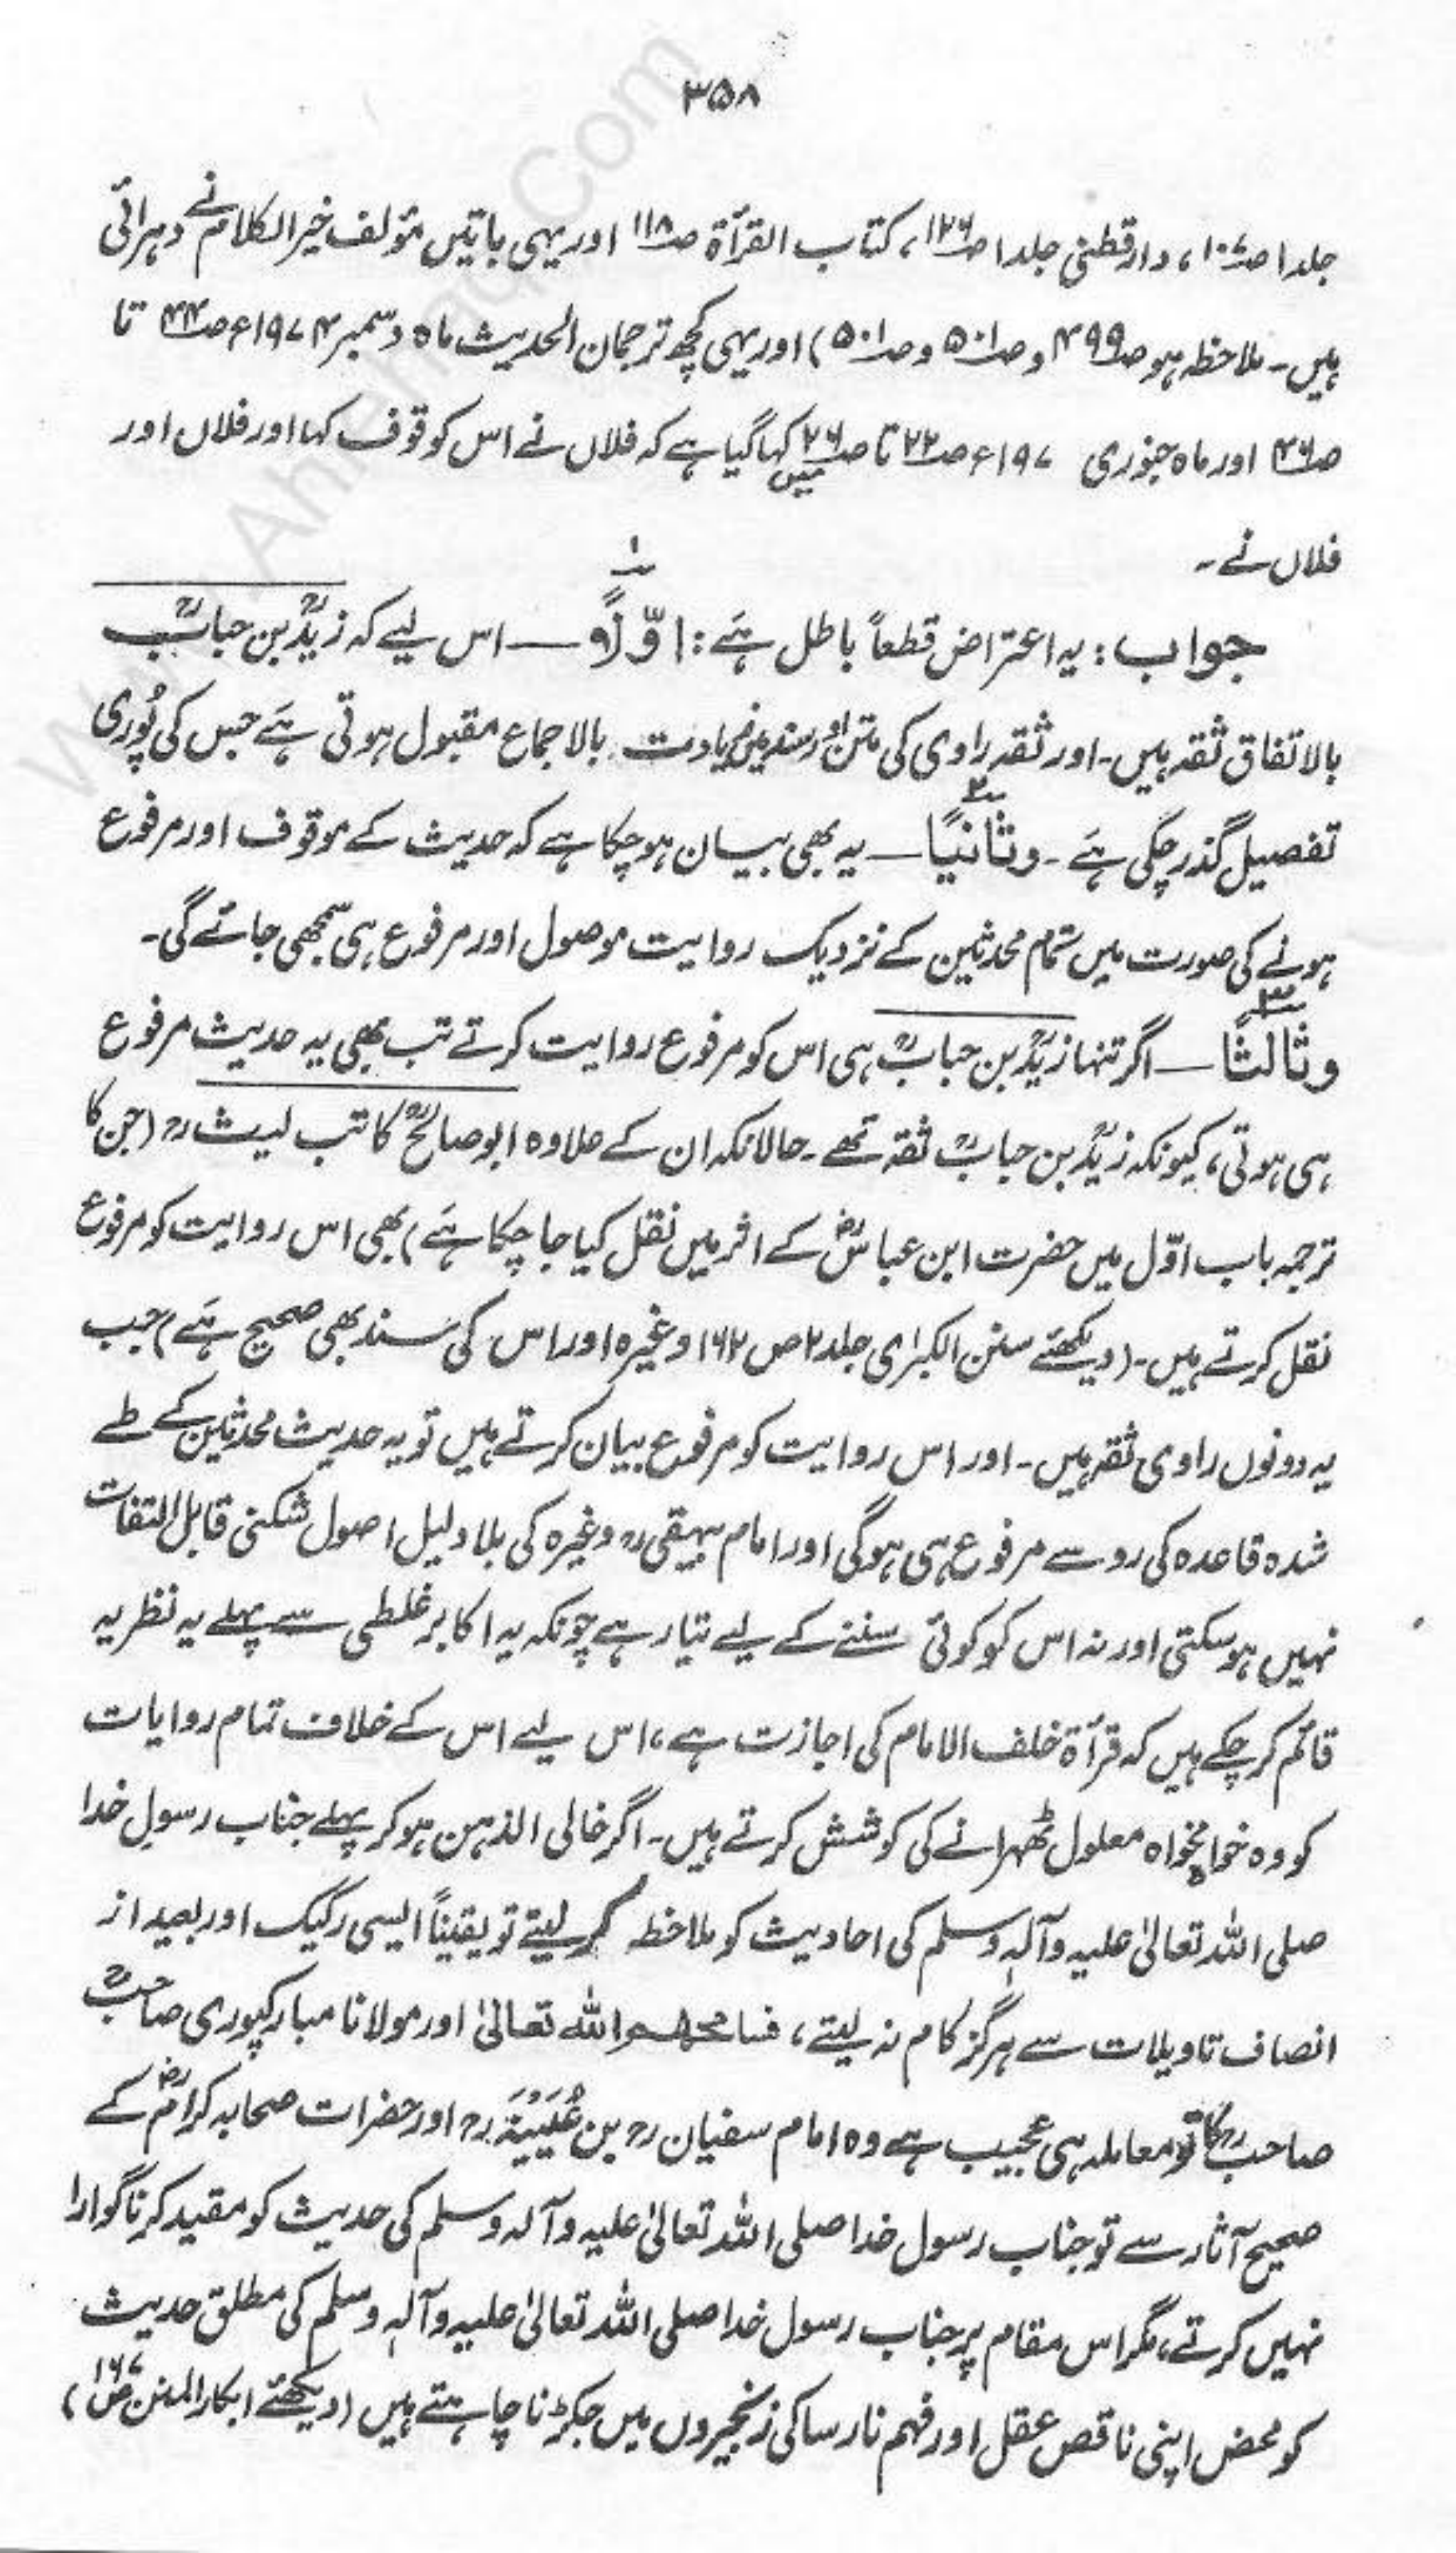 ۳۵۸
جلد ۱ ص۱۰۷، دارقطنی جلد ۱ ص۱۲۶، کتاب القرأۃ ص۱۱۸ اور یہی باتیں مؤلف خیر الکلام نے دہرائی
ہیں۔ ملاحظہ ہو ص۴۹۹ و ص۵۰۱ و ص۵۰۱) اور یہی کچھ ترجمان الحدیث ماہ دسمبر ۱۹۷۴ء ص۴۴ تا
ص۴۶ اور ماہ جنوری ۱۹۷ء ص۲۲ تا ص۲۶ میں کہا گیا ہے کہ فلاں نے اس کو قوف کہا اور فلاں اور
فلاں نے۔
جواب: یہ اعتراض قطعاً باطل ہے: اوّلاً ۱ — اس لیے کہ زیدؒ بن حبابؒ
بالاتفاق ثقہ ہیں۔ اور ثقہ راوی کی متن اور سند میں زیادت بالاجماع مقبول ہوتی ہے جس کی پُوری
تفصیل گذر چکی ہے۔ وثانیًا ۲ — یہ بھی بیان ہو چکا ہے کہ حدیث کے موقوف اور مرفوع
ہونے کی صورت میں تمام محدثین کے نزدیک روایت موصول اور مرفوع ہی سمجھی جائے گی۔
وثالثًا ۳ — اگر تنہا زیدؒ بن حبابؒ ہی اس کو مرفوع روایت کرتے تب بھی یہ حدیث مرفوع
ہی ہوتی، کیونکہ زیدؒ بن حبابؒ ثقہ تھے۔ حالانکہ ان کے علاوہ ابو صالحؒ کاتب لیثؒ (جن کا
ترجمہ باب اوّل میں حضرت ابن عباسؓ کے اثر میں نقل کیا جا چکا ہے) بھی اس روایت کو مرفوع
نقل کرتے ہیں۔ (دیکھئے سنن الکبرٰی جلد ۲ ص ۱۶۲ وغیرہ اور اس کی سند بھی صحیح ہے) جب
یہ دونوں راوی ثقہ ہیں۔ اور اس روایت کو مرفوع بیان کرتے ہیں تو یہ حدیث محدثین کے طے
شدہ قاعدہ کی رو سے مرفوع ہی ہوگی اور امام بیہقیؒ وغیرہ کی بلا دلیل اصول شکنی قابل التفات
نہیں ہو سکتی اور نہ اس کو کوئی سننے کے لیے تیار ہے چونکہ یہ اکابر غلطی سے پہلے یہ نظریہ
قائم کر چکے ہیں کہ قرأۃ خلف الامام کی اجازت ہے، اس لیے اس کے خلاف تمام روایات
کو وہ خواہ مخواہ معلول ٹھہرانے کی کوشش کرتے ہیں۔ اگر خالی الذہن ہو کر پہلے جناب رسول خدا
صلی اللہ تعالیٰ علیہ وآلہٖ وسلم کی احادیث کو ملاحظہ کر لیتے تو یقیناً ایسی رکیک اور بعید از
انصاف تاویلات سے ہرگز کام نہ لیتے، اللہ تعالیٰ اور مولانا مبارکپوری صاحبؒ
صاحبؒ کا تو معاملہ ہی عجیب ہے وہ امام سفیانؒ بن عُیَیْنَۃَؒ اور حضرات صحابہ کرامؓ کے
صحیح آثار سے تو جناب رسول خدا صلی اللہ تعالیٰ علیہ وآلہ وسلم کی حدیث کو مقید کرنا گوارا
نہیں کرتے، مگر اس مقام پر جناب رسول خدا صلی اللہ تعالیٰ علیہ وآلہٖ وسلم کی مطلق حدیث
کو محض اپنی ناقص عقل اور فہم نارسا کی زنجیروں میں جکڑنا چاہتے ہیں (دیکھئے ابکار المنن ص۱۶۷)